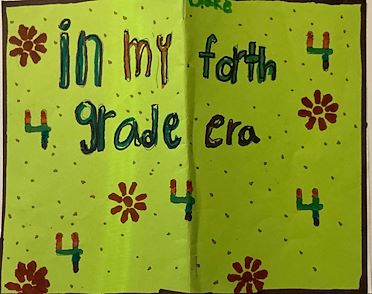 in my forth 4
4 grade era
4 4
4